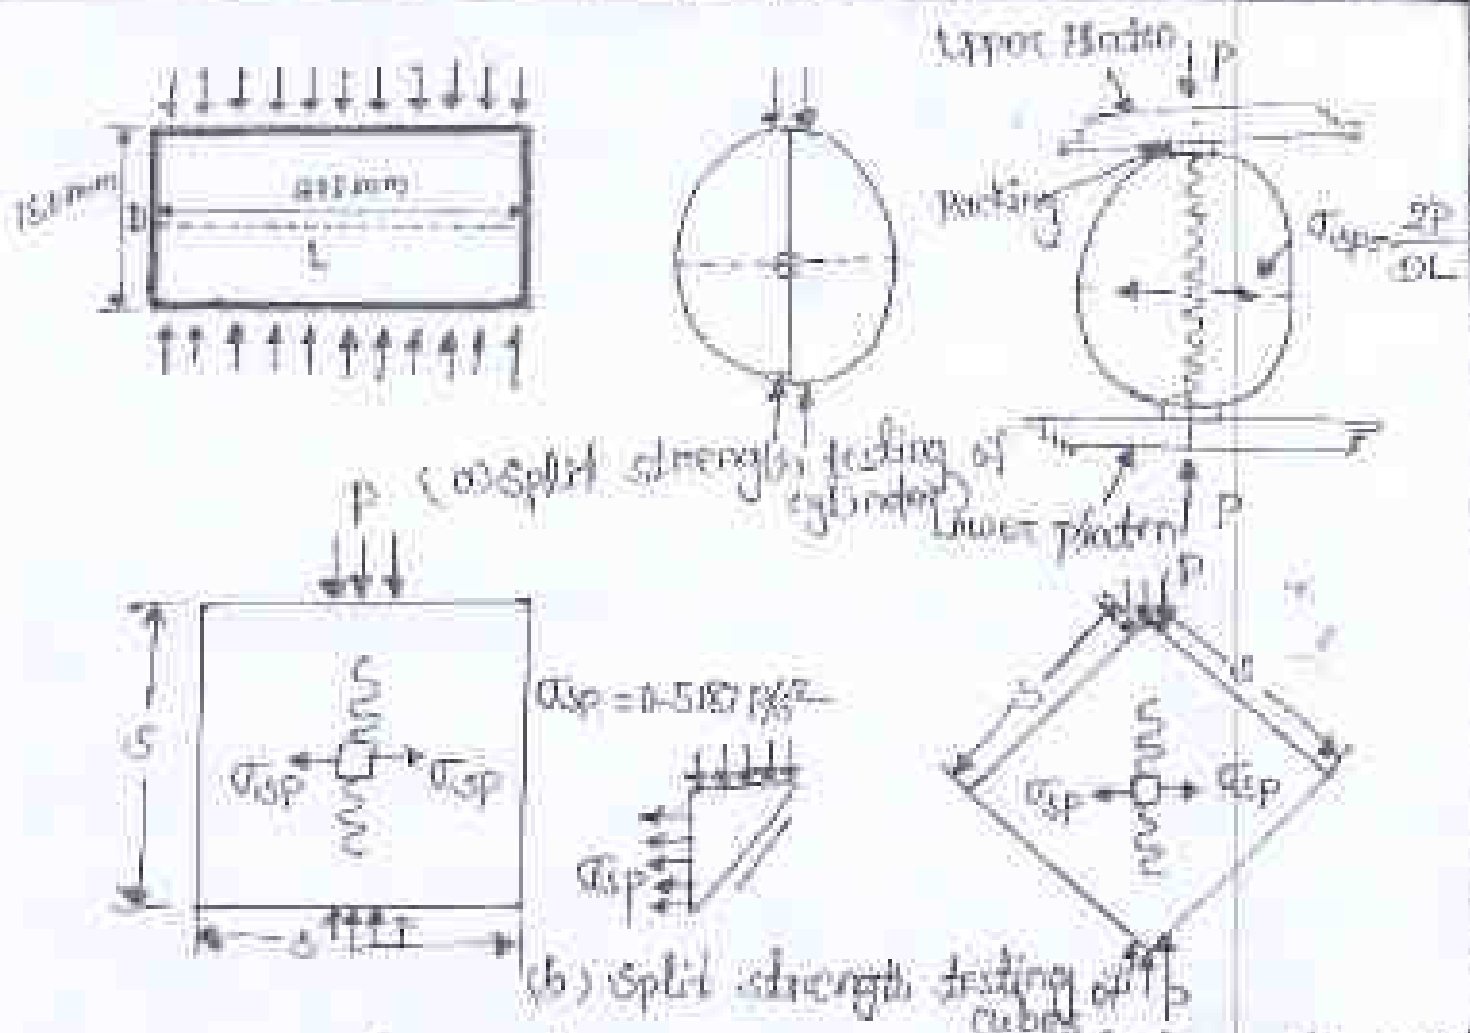 P
150mm
D
L
packing
σsp = 2P
DL
(a) split strength testing of
cylinder)
Lower platen
P
P
P
S
σsp
σsp
σsp = 0.5187 P/S²
S
σsp
S
S
σsp
σsp
P
(b) split strength testing of
cubes